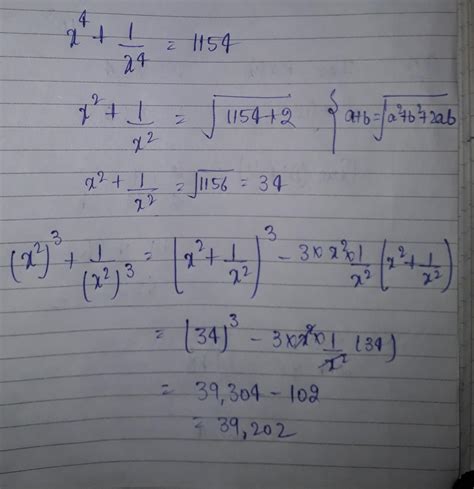 x⁴ + 1/x⁴ = 1154
x² + 1/x² = √(1154+2) { a+b = √(a²+b²+2ab)
x² + 1/x² = √1156 = 34
(x²)³ + 1/(x²)³ = (x² + 1/x²)³ - 3 × x² × 1/x² (x² + 1/x²)
= (34)³ - 3 × x² × 1/x² (34)
= 39,304 - 102
= 39,202